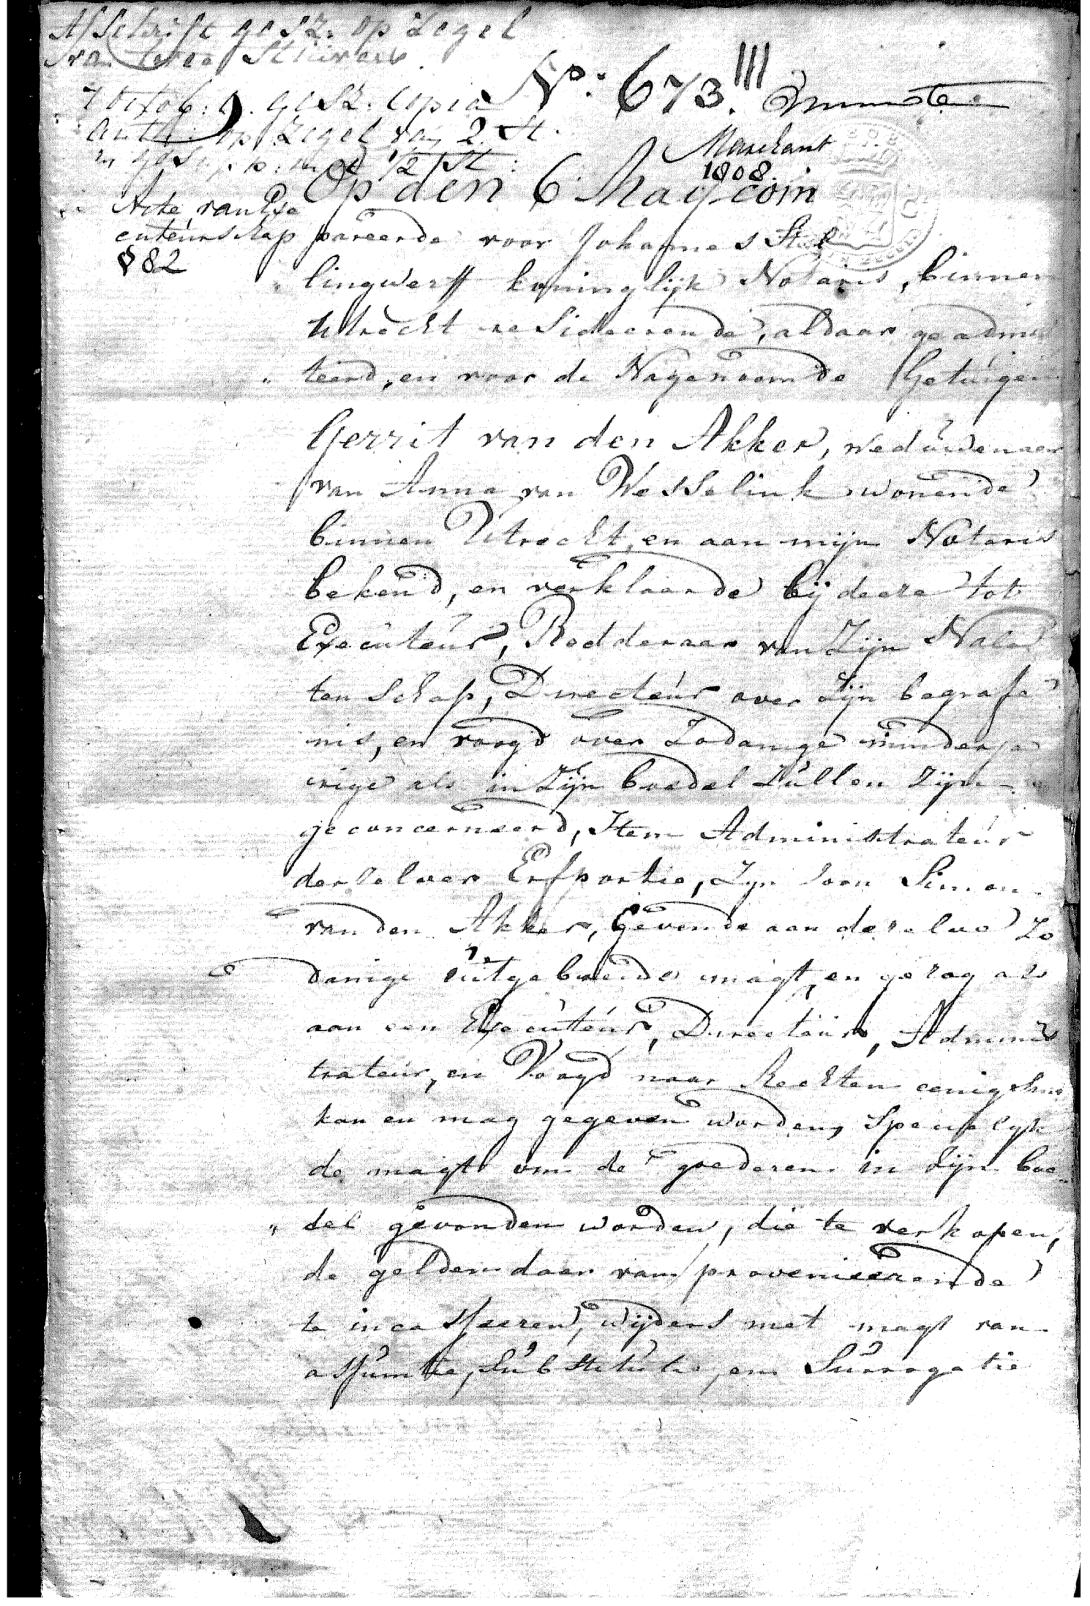 Afschrift gesz. op Zegel
van twee Stuivers
7 Octob: gesz. Copia
auth: op Zegel van 2. St.
No. 673. III
Minuete
Marchant
1808.
Op den 6 May com
Acte van Exe
cuteurschap
§ 82
pareerde voor Johannes Ste
lingwerff koninglijk Notaris, binnen
Utrecht resideerende, aldaar geadmit
teerd, en voor de Nagenoemde Getuigen
Gerrit van den Akker, weduwenaar
van Anna van Wesselink wonende
binnen Utrecht, en aan mijn Notaris
bekend, en verklaarde bij deeze tot
Executeur, Redderaar van Zijn Nala
tenschap, Directeur over Zijn begrafe
nis, en voogd over Zodanige minderja
rige als in Zijn boedel Zullen Zijn
geconcerneerd, Item Administrateur
derzelver Erfportie, Zyn Soon Simon
van den Akker, Gevende aan dezelve Zo
danige uitgebreide magt, en gezag als
aan een Executeur, Directeur, Adminis
trateur, en Voogd naar Rechten eenigsins
kan en mag gegeven worden, Specialyk
de magt om de goederen in Zijn boe
del gevonden worden, die te verkopen,
de gelden daar van provenieerende
te incasseeren, wijders met magt van
assumtie, Substitutie, en Surrogatie